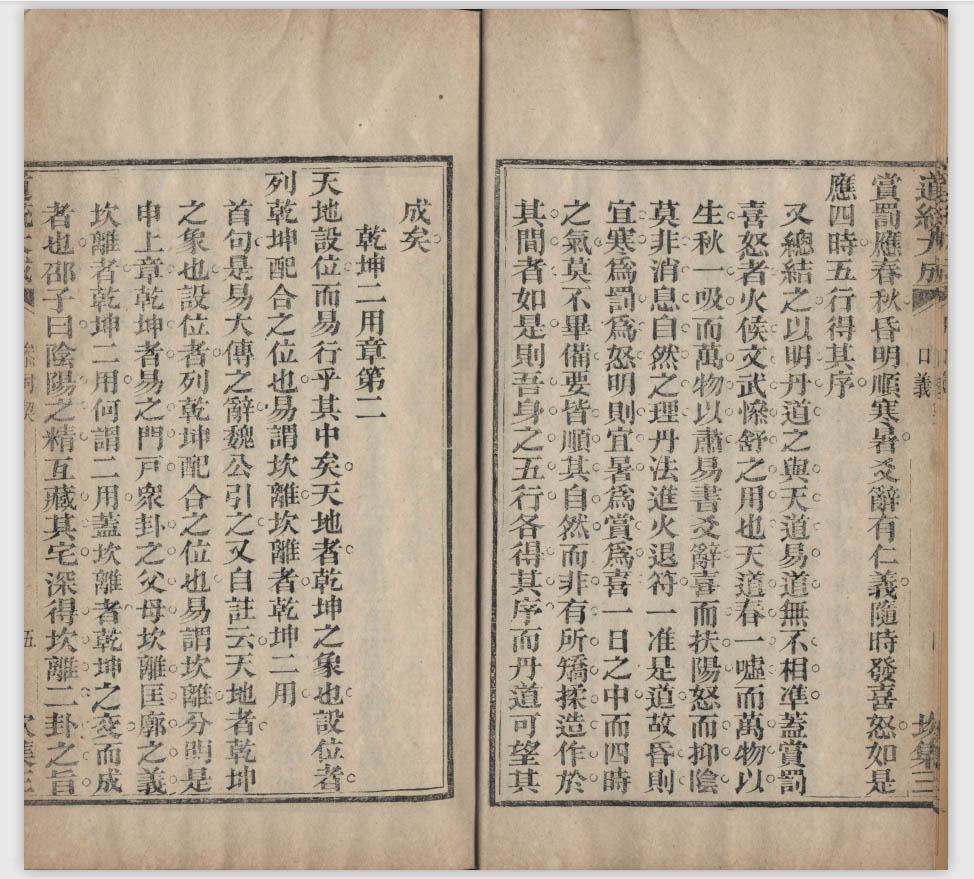 道統大成
口義
坎集三
賞罰應春秋昏明順寒暑爻辭有仁義隨時發喜怒如是
應四時五行得其序
又總結之以明丹道之與天道易道無不相準蓋賞罰
喜怒者火候文武慘舒之用也天道春一噓而萬物以
生秋一吸而萬物以肅易書爻辭喜而扶陽怒而抑陰
莫非消息自然之理丹法進火退符一准是道故昏則
宜寒爲罰爲怒明則宜暑爲賞爲喜一日之中而四時
之氣莫不畢備要皆順其自然而非有所矯揉造作於
其間者如是則吾身之五行各得其序而丹道可望其
成矣
乾坤二用章第二
天地設位而易行乎其中矣天地者乾坤之象也設位者
列乾坤配合之位也易謂坎離坎離者乾坤二用
首句是易大傳之辭魏公引之又自註云天地者乾坤
之象也設位者列乾坤配合之位也易謂坎離分明是
申上章乾坤者易之門戸衆卦之父母坎離匡廓之義
坎離者乾坤二用何謂二用蓋坎離者乾坤之变而成
者也邵子曰陰陽之精互藏其宅深得坎離二卦之旨
五